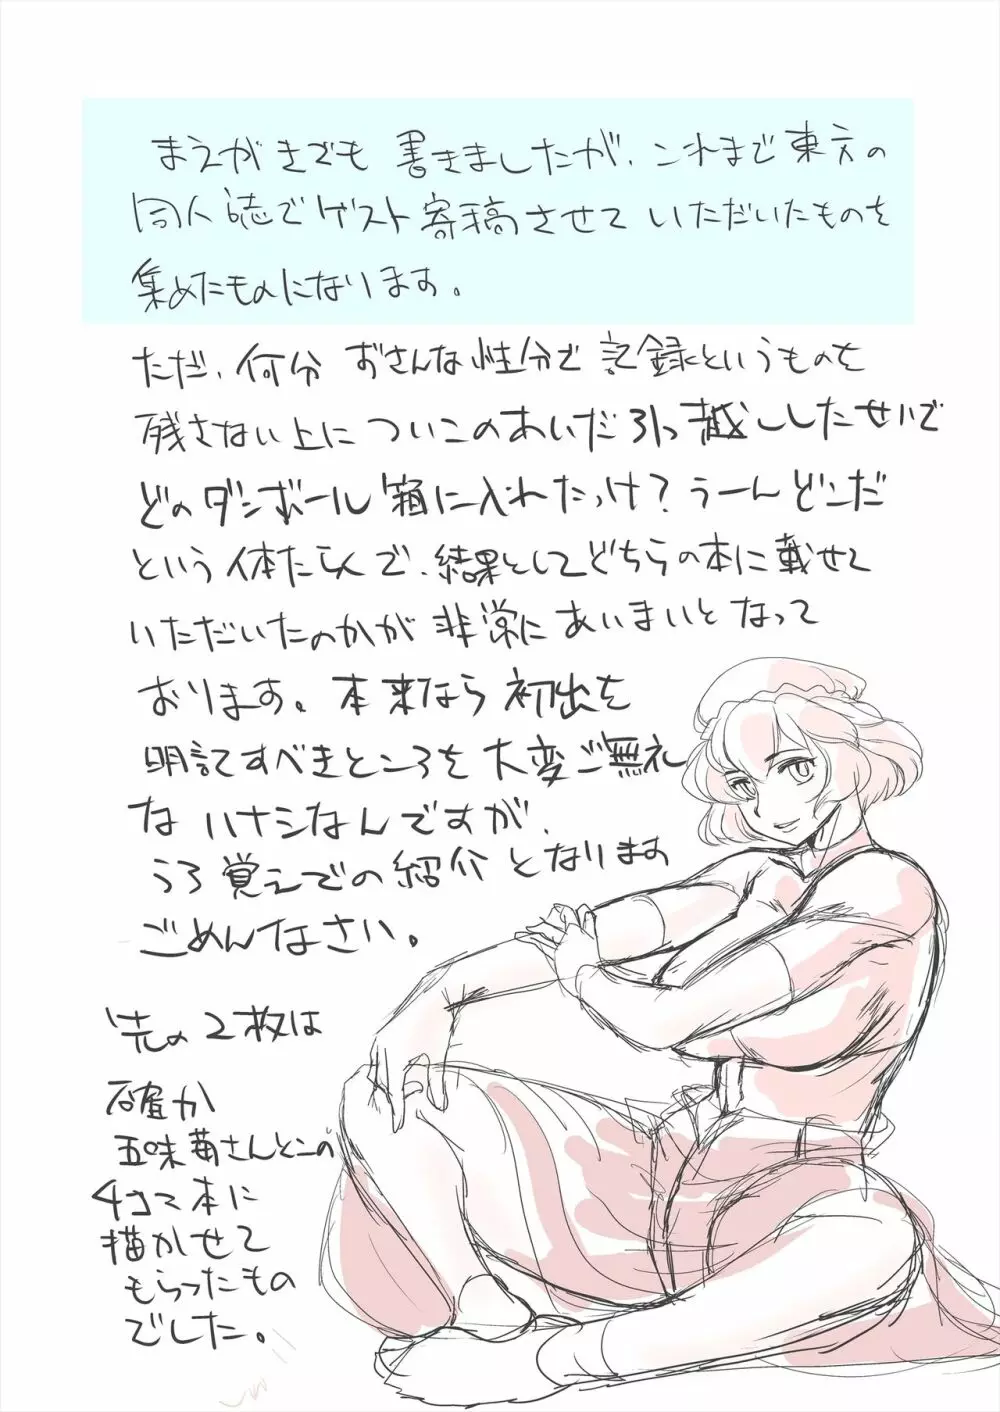 まえがきでも書きましたが、これまで東方の
同人誌でゲスト寄稿させていただいたものを
集めたものになります。
ただ、何分おさんな性分で記録というものを
残さない上についこのあいだ引っ越ししたせいで
どのダンボール箱に入れたっけ?うーんどこだ
という体たらくで、結果としてどちらの本に載せて
いただいたのかが非常にあいまいとなって
おります。本来なら初出を
明記すべきところを大変ご無礼
なハナシなんですが、
うろ覚えでの紹介となります
ごめんなさい。
先の2枚は
確か
五味苺さんとこの
4コマ本に
描かせて
もらったもの
でした。